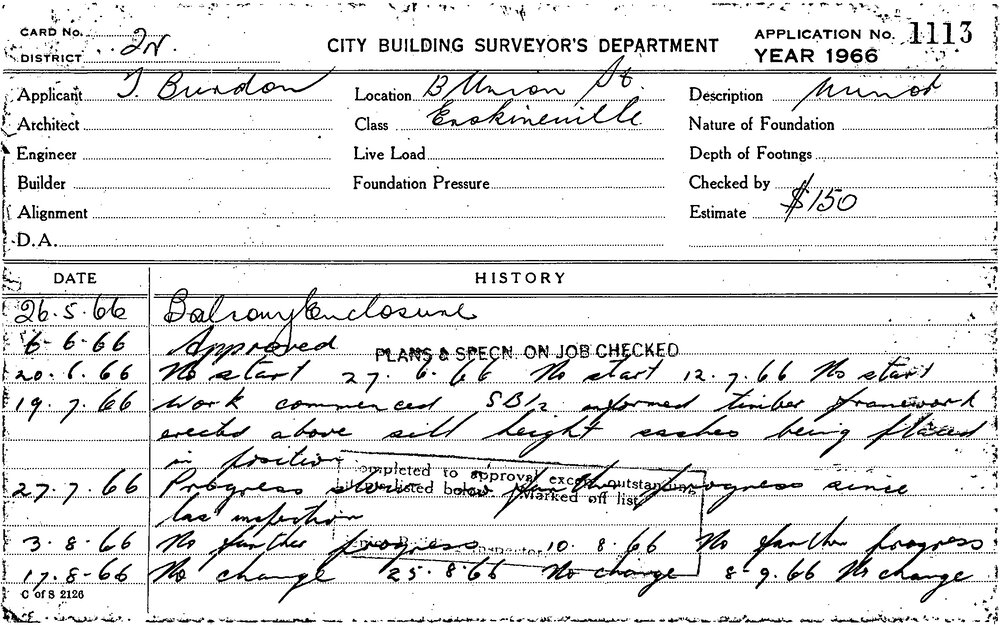 CARD No.
DISTRICT 2N.
CITY BUILDING SURVEYOR'S DEPARTMENT
APPLICATION No. 1113
YEAR 1966
Applicant T. Burdon
Location 8 Union St.
Description Minor
Architect
Class Erskineville
Nature of Foundation
Engineer
Live Load
Depth of Footings
Builder
Foundation Pressure
Checked by
Alignment
Estimate $150
D.A.
DATE HISTORY
26.5.66 Balcony Enclosure
6-6-66 Approved PLANS & SPECN. ON JOB CHECKED
20.6.66 No start 27.6.66 No start 12.7.66 No start
19.7.66 Work commenced informed timber framework
erected above sill height sashes being placed
in position
ompleted to approval except outstanding
listed below Marked off list
27.7.66 Progress progress since
las inspection
3.8.66 No further progress 10.8.66 No further progress
Inspector
17.8-66 No change 25.8.66 No change 8-9.66 No change
C of S 2126